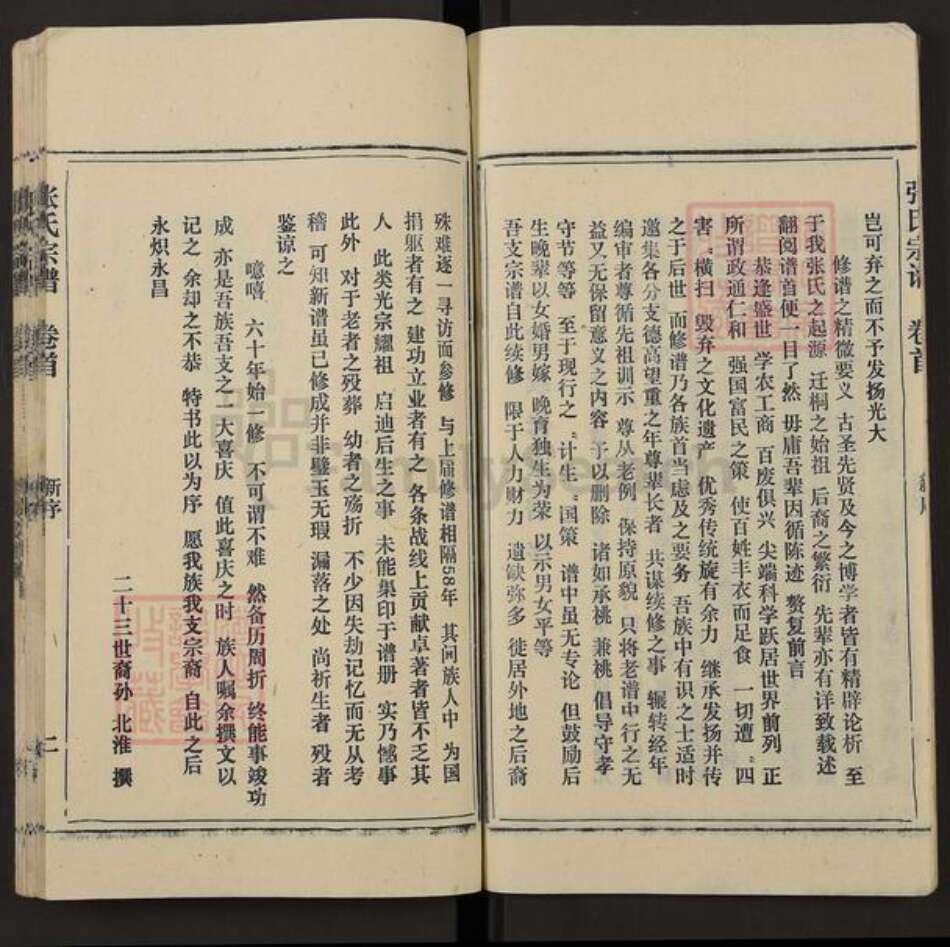 张氏宗谱 卷首
岂可弃之而不予发扬光大
修谱之精微要义 古圣先贤及今之博学者皆有精辟论析 至
于我张氏之起源 迁桐之始祖 后裔之繁衍 先辈亦有详致载述
翻阅谱首便一目了然 毋庸吾辈因循陈迹 赘复前言
恭逢盛世 学农工商 百废俱兴 尖端科学跃居世界前列 正
所谓政通仁和 强国富民之策 使百姓丰衣而足食 一切遭“四
害”横扫 毁弃之文化遗产 优秀传统旋有余力 继承发扬并传
之于后世 而修谱乃各族首当虑及之要务 吾族中有识之士适时
邀集各分支德高望重之年尊辈长者 共谋续修之事 辗转经年
编审者尊循先祖训示 尊从老例 保持原貌 只将老谱中行之无
益又无保留意义之内容 予以删除 诸如承桃 兼桃 倡导守孝
守节等等 至于现行之“计生”国策 谱中虽无专论 但鼓励后
生晚辈以女婚男嫁 晚育独生为荣 以示男女平等
吾支宗谱自此续修 限于人力财力 遗缺弥多 徙居外地之后裔
殊难逐一寻访而参修 与上届修谱相隔58年 其间族人中 为国
捐躯者有之 建功立业者有之 各条战线上贡献卓著者皆不乏其
人 此类光宗耀祖 启迪后生之事 未能集印于谱册 实乃憾事
此外 对于老者之殁葬 幼者之殇折 不少因失劫记忆而无从考
稽 可知新谱虽已修成并非璧玉无瑕 漏落之处 尚祈生者 殁者
鉴谅之
噫嘻 六十年始一修 不可谓不难 然备历周折 终能事竣功
成 亦是吾族吾支之一大喜庆 值此喜庆之时 族人嘱余撰文以
记之 余却之不恭 特书此以为序 愿我族我支宗裔 自此之后
永炽永昌
二十三世裔孙 北淮 撰
张氏宗谱 卷首 新序 二